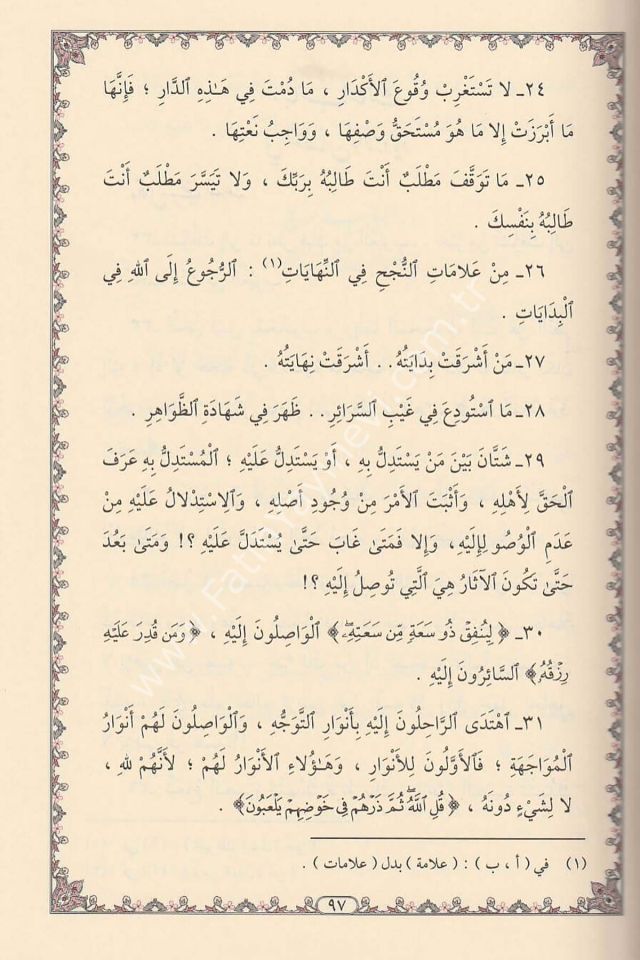 ٢٤ـ لا تَسْتَغْرِبْ وُقُوعَ ٱلأَكْدَارِ ، مَا دُمْتَ فِي هَـٰذِهِ ٱلدَّارِ ؛ فَإِنَّهَا
مَا أَبْرَزَتْ إِلا مَا هُوَ مُسْتَحَقُّ وَصْفِهَا ، وَوَاجِبُ نَعْتِهَا .
٢٥ـ مَا تَوَقَّفَ مَطْلَبٌ أَنْتَ طَالِبُهُ بِرَبِّكَ ، وَلا تَيَسَّرَ مَطْلَبٌ أَنْتَ
طَالِبُهُ بِنَفْسِكَ .
٢٦ـ مِنْ عَلامَاتِ ٱلنُّجْحِ فِي ٱلنِّهَايَاتِ(١) : ٱلرُّجُوعُ إِلَى ٱللهِ فِي
ٱلْبِدَايَاتِ .
٢٧ـ مَنْ أَشْرَقَتْ بِدَايَتُهُ . . أَشْرَقَتْ نِهَايَتُهُ .
٢٨ـ مَا ٱسْتُودِعَ فِي غَيْبِ ٱلسَّرَائِرِ . . ظَهَرَ فِي شَهَادَةِ ٱلظَّوَاهِرِ .
٢٩ـ شَتَّانَ بَيْنَ مَنْ يَسْتَدِلُّ بِهِ ، أَوْ يَسْتَدِلُّ عَلَيْهِ ؛ ٱلْمُسْتَدِلُّ بِهِ عَرَفَ
ٱلْحَقَّ لِأَهْلِهِ ، وَأَثْبَتَ ٱلأَمْرَ مِنْ وُجُودِ أَصْلِهِ ، وَٱلِاسْتِدْلالُ عَلَيْهِ مِنْ
عَدَمِ ٱلْوُصُولِ إِلَيْهِ، وَإِلا فَمَتَىٰ غَابَ حَتَّىٰ يُسْتَدَلَّ عَلَيْهِ ؟! وَمَتَىٰ بَعُدَ
حَتَّىٰ تَكُونَ ٱلآثَارُ هِيَ ٱلَّتِي تُوصِلُ إِلَيْهِ ؟!
٣٠ـ ﴿ لِيُنفِقْ ذُو سَعَةٍ مِّن سَعَتِهِۦ ۖ﴾ ٱلْوَاصِلُونَ إِلَيْهِ ، ﴿وَمَن قُدِرَ عَلَيْهِ
رِزْقُهُۥ﴾ ٱلسَّائِرُونَ إِلَيْهِ .
٣١ـ ٱهْتَدَى ٱلرَّاحِلُونَ إِلَيْهِ بِأَنْوَارِ ٱلتَّوَجُّهِ ، وَٱلْوَاصِلُونَ لَهُمْ أَنْوَارُ
ٱلْمُوَاجَهَةِ ؛ فَٱلأَوَّلُونَ لِلأَنْوَارِ ، وَهَـٰؤُلاءِ ٱلأَنْوَارُ لَهُمْ ؛ لأَنَّهُمْ للهِ ،
لا لِشَيْءٍ دُونَهُ ، ﴿ قُلِ ٱللَّهُ ۖ ثُمَّ ذَرْهُمْ فِي خَوْضِهِمْ يَلْعَبُونَ﴾ .
(١) في ( أ ، ب ) : ( علامة ) بدل ( علامات ) .
٩٧